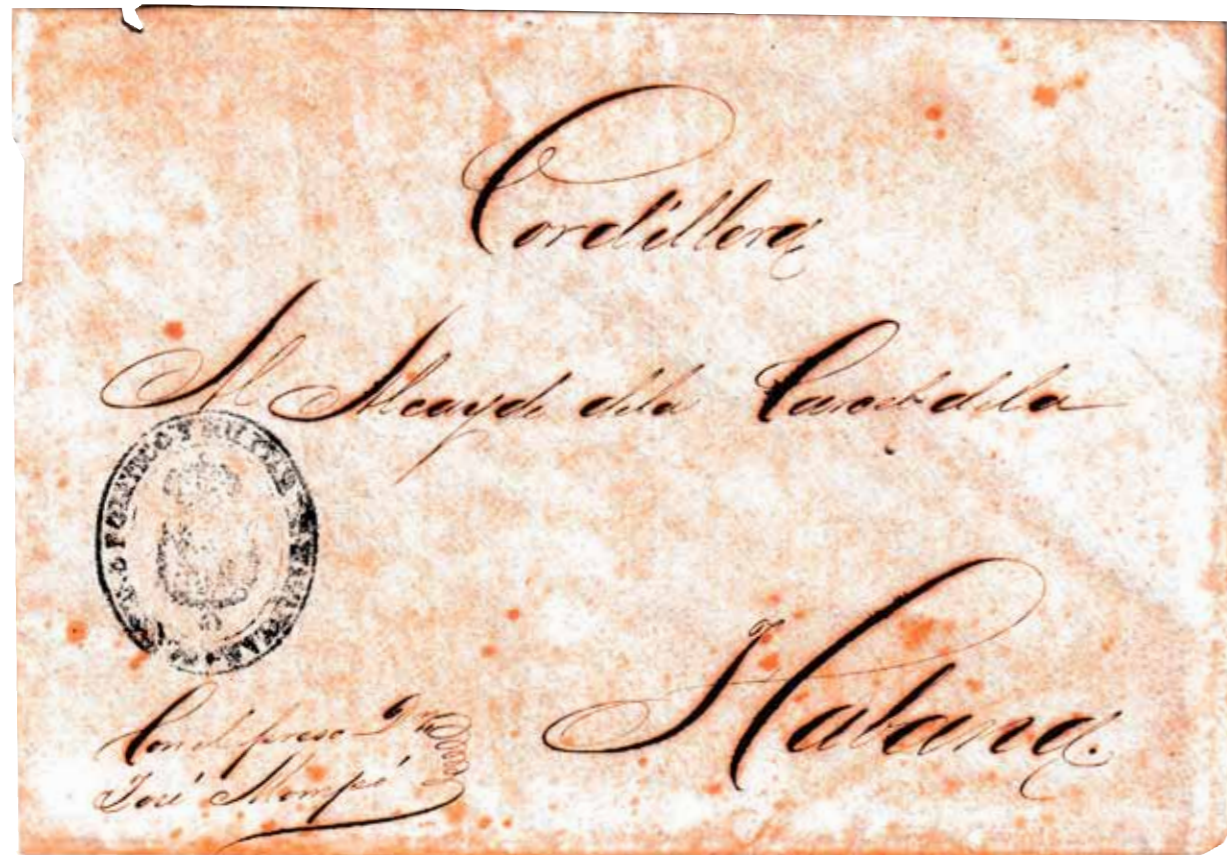 Cordillera
Al Alcayde dela Carcel dela
POLITICO Y MILITAR
Habana.
Con el preso
José Mompó